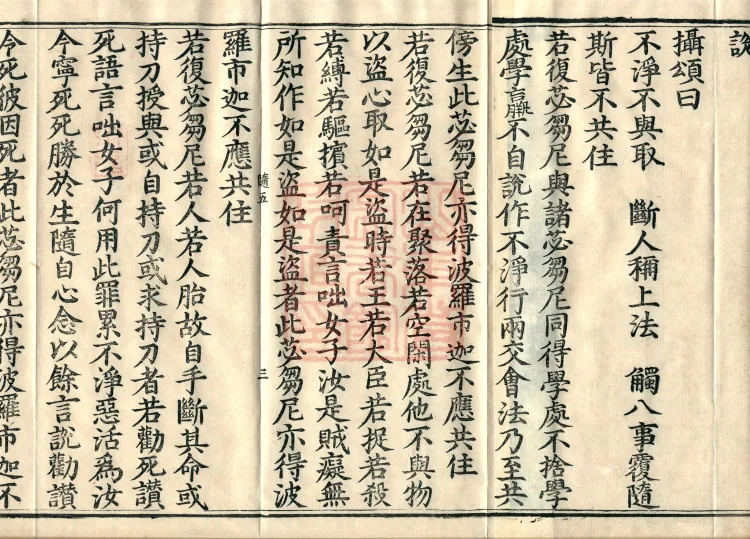 說
攝頌曰
不淨不與取　斷人稱上法　觸八事覆隨
斯皆不共住
若復苾芻尼與諸苾芻尼同得學處不捨學
處學羸不自說作不淨行兩交會法乃至共
傍生此苾芻尼亦得波羅市迦不應共住
若復苾芻尼若在聚落若空閑處他不與物
以盜心取如是盜時若王若大臣若捉若殺
若縛若驅擯若呵責言咄女子汝是賊癡無
所知作如是盜如是盜者此苾芻尼亦得波
隨五
三
羅市迦不應共住
若復苾芻尼若人若人胎故自手斷其命或
持刀授與或自持刀或求持刀者若勸死讚
死語言咄女子何用此罪累不淨惡活為汝
今寧死死勝於生隨自心念以餘言說勸讚
令死彼因死者此苾芻尼亦得波羅市迦不